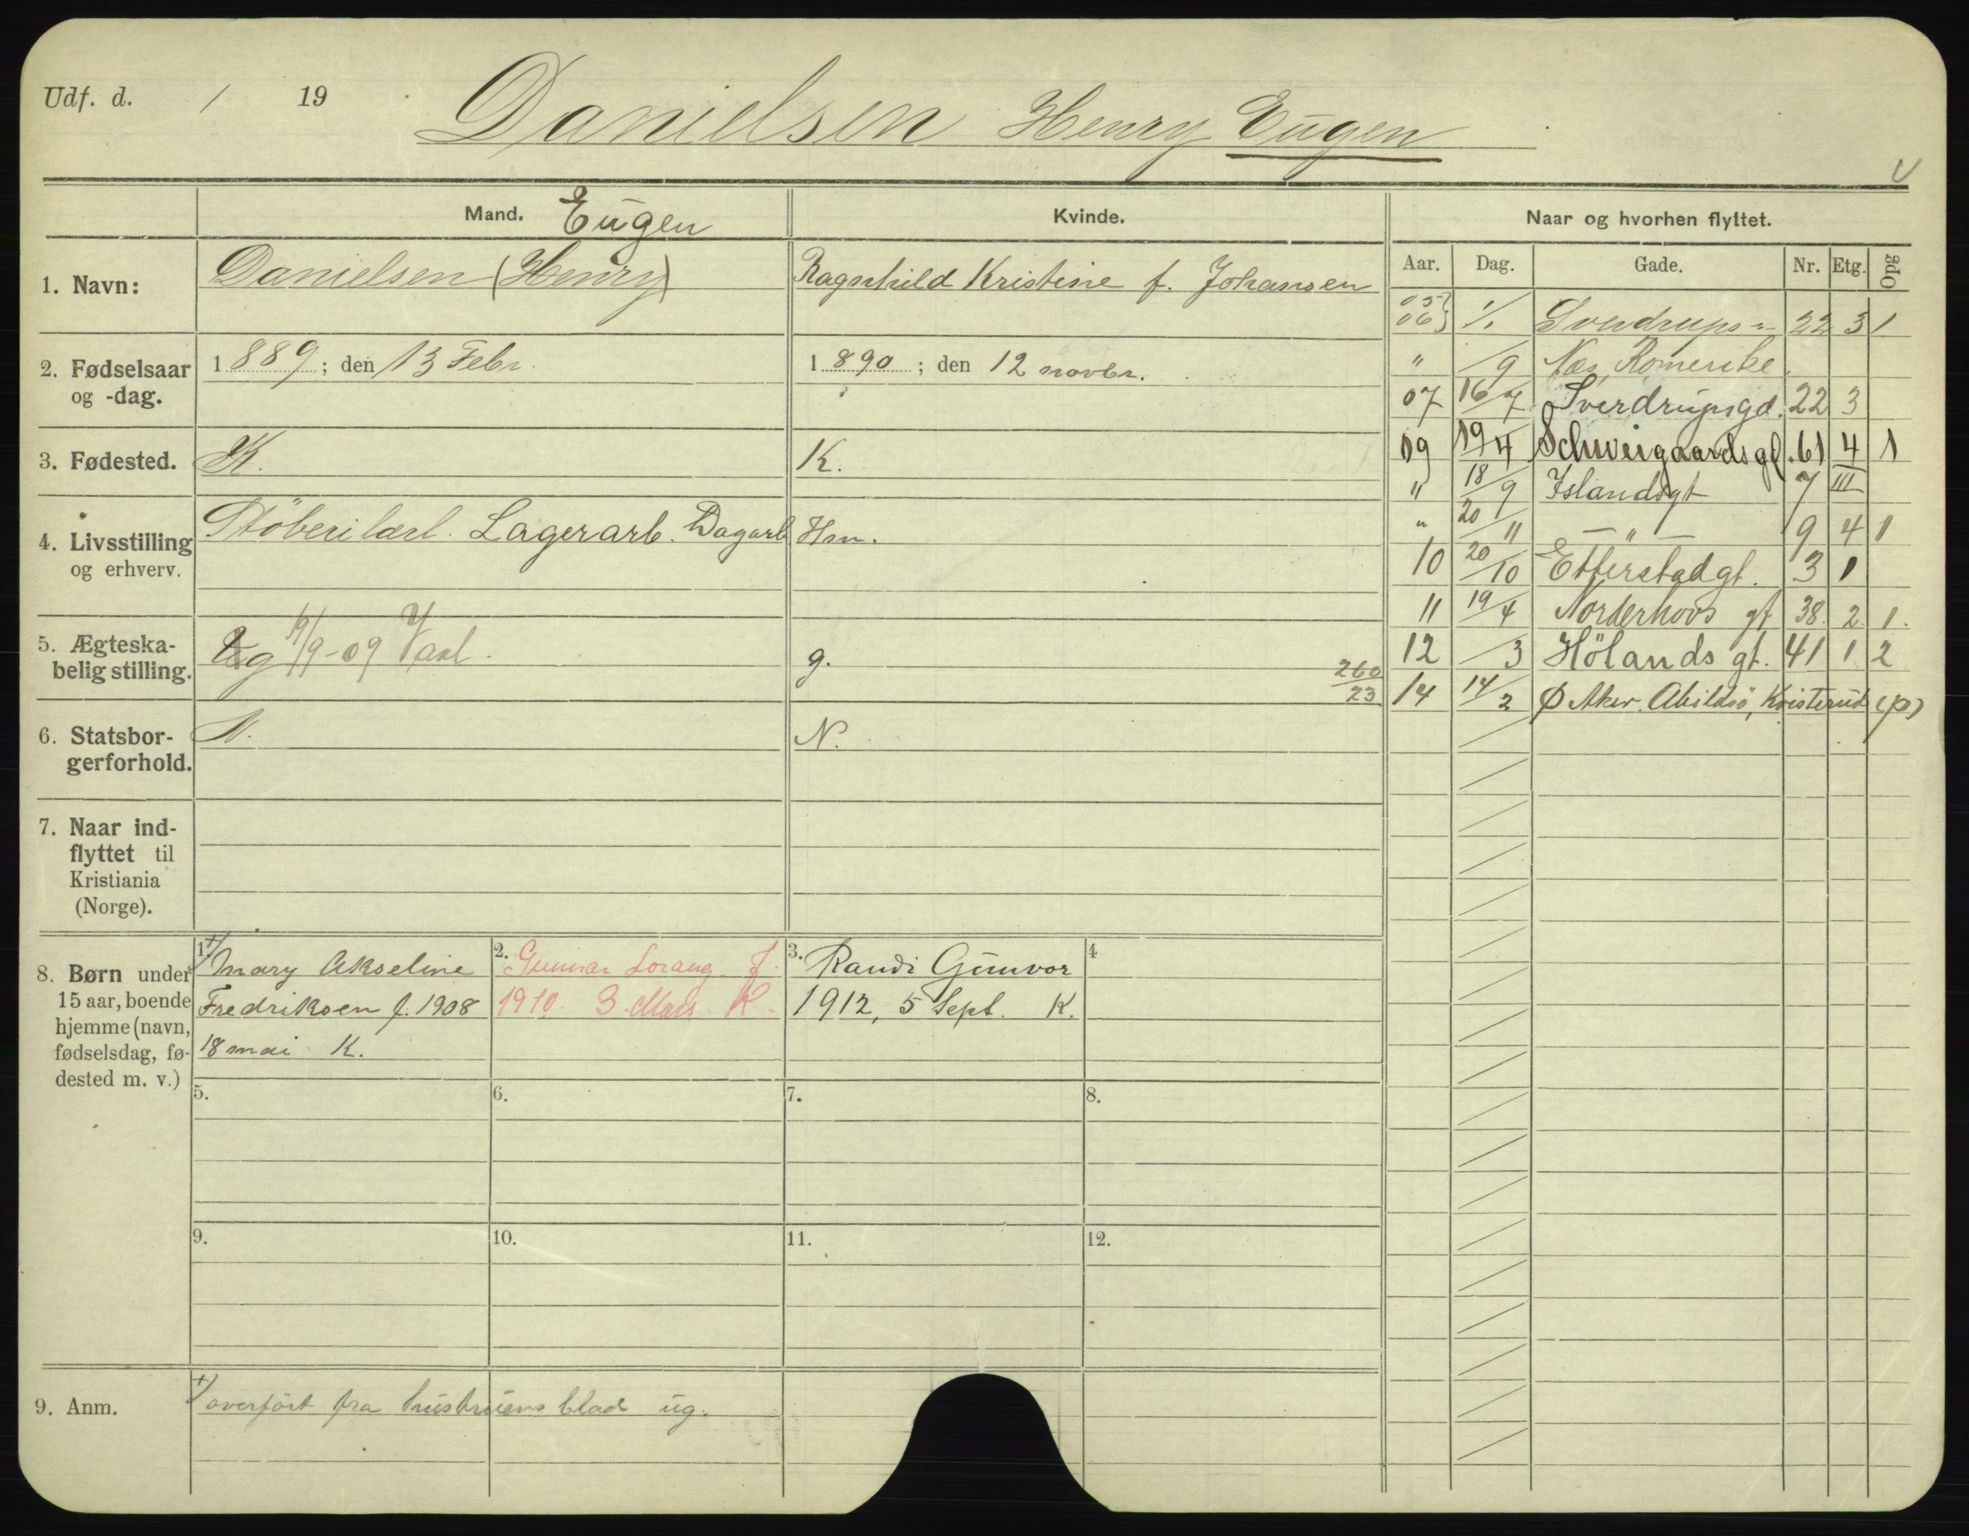 Udf. d. / 19
Danielsen Henry Eugen
Mand. Eugen
Kvinde.
Naar og hvorhen flyttet.
Aar. Dag. Gade. Nr. Etg. Opg
1. Navn:
Danielsen (Henry)
Ragnhild Kristine f. Johansen
2. Fødselsaar
og -dag.
1889; den 13 Febr.
1890; den 12 novbr.
3. Fødested.
K.
K.
4. Livsstilling
og erhverv.
Støberilærl. Lagerarb. Dagarb
Hm.
5. Ægteska-
belig stilling.
g 19/9-09
g.
260/23
6. Statsbor-
gerforhold.
N.
N.
7. Naar ind-
flyttet til
Kristiania
(Norge).
05 06 1/ Sverdrups 22 3 1
" /9 Næs, Romerike.
07 16/7 Sverdrupsgd. 22 3
09 19/4 Schweigaardsgt. 61 4 1
" 18/9 Islandsgt 7 III
" 20/11 — " — 9 4 1
10 20/10 Etterstadgt. 3 1
11 19/4 Norderhovs gt 38. 2. 1.
12 /3 Hölands gt. 41 1 2
14 14/2 Ø Aker. Abildsö, Kvisterud (p)
8. Børn under
15 aar, boende
hjemme (navn,
fødselsdag, fø-
dested m. v.)
1. +/ Mary Akseline
Fredriksen f. 1908
18 mai K.
2. Gunnar Lorang f.
1910. 3 Mars K.
3. Randi Gunvor
1912, 5 Sept. K.
4
5.
6.
7.
8.
9.
10.
11.
12.
9. Anm.
+/ overført fra hustruens blad ug.